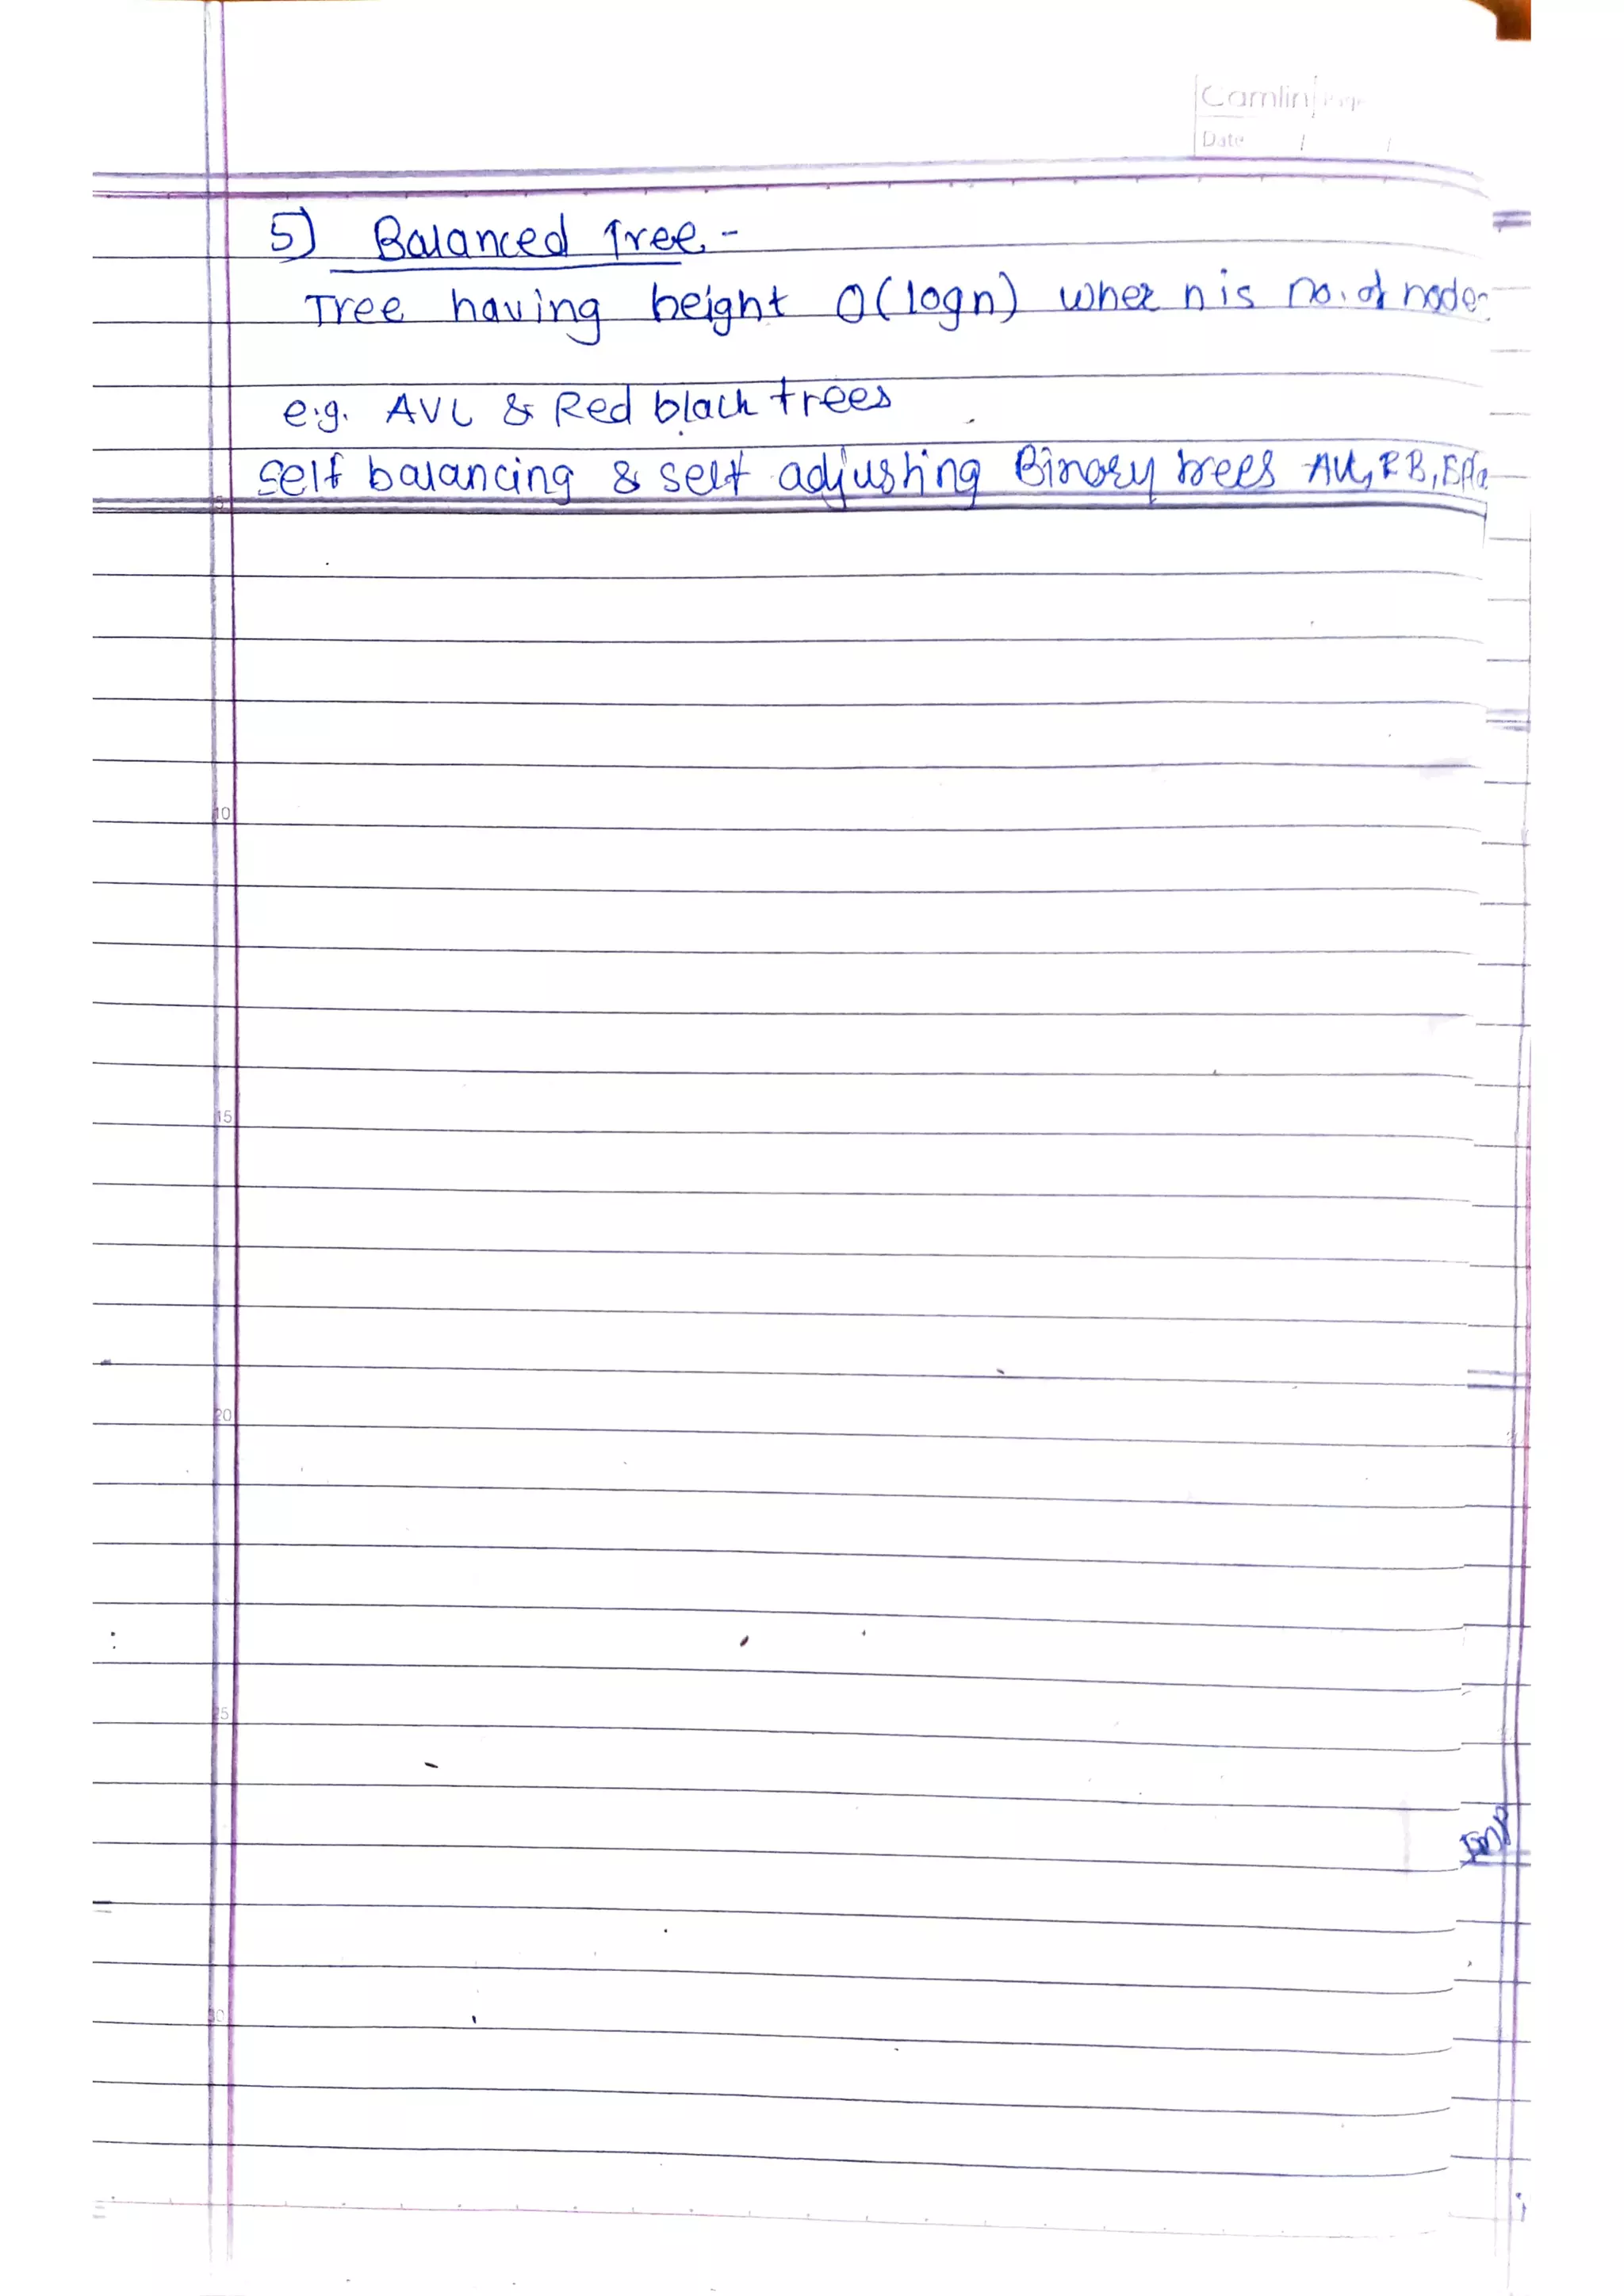 Camlin Page
Date / /
5) Balanced Tree -
Tree having height O(logn) wher n is no. of node
e.g. AVL & Red black trees
self balancing & self adjusting Binary trees AVL, RB, Spla
5
10
15
20
25
30